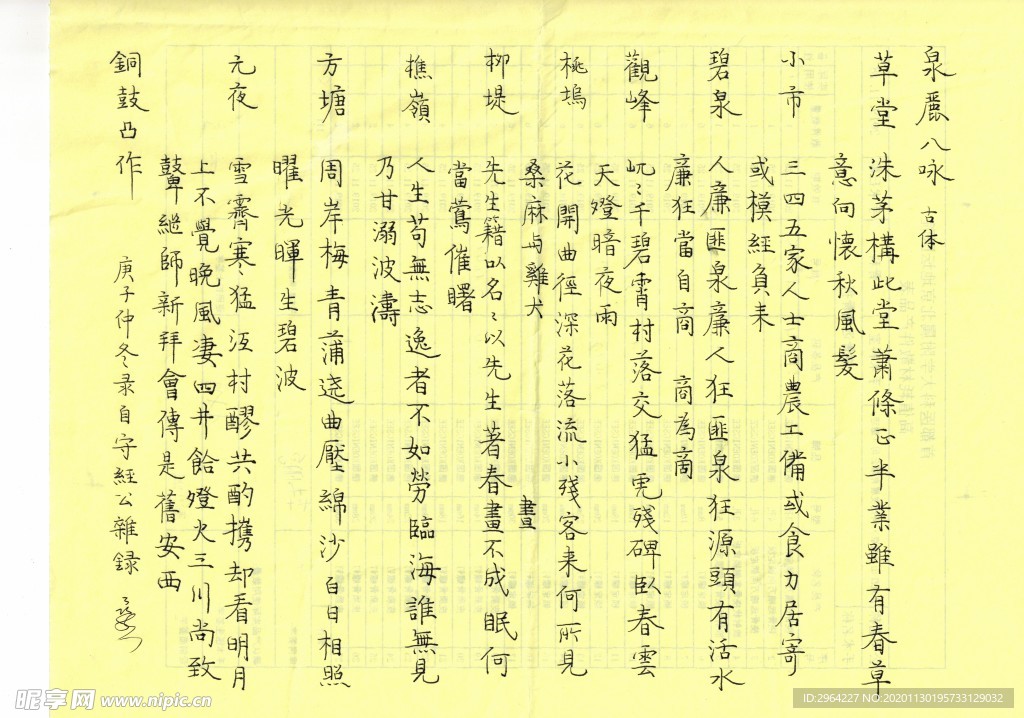 泉麗八咏 古体
草堂 洙茅構此堂蕭條正半業雖有春草
意向懷秋風髮
小市 三四五家人士商農工備或食力居寄
或模經負耒
碧泉 人廉匪泉廉人狂匪泉狂源頭有活水
廉狂當自商 商為商
觀峰 屼々千碧霄村落交猛兕殘碑臥春雲
天燈暗夜雨
桃塢 花開曲徑深花落流小殘客来何所見
桑麻与雞犬
柳堤 先生籍以名々以先生著春畫不成眠何
晝
當鶯催曙
樵嶺 人生苟無志逸者不如勞臨海誰無見
乃甘溺波濤
方塘 周岸梅青蒲遶曲壓綿沙白日相照
曜光暉生碧波
元夜 雪霽寒猛江村醪共酌攜却看明月
上不覺晚風凄四井飴燈火三川尚致
鼙繼師新拜會傳是舊安西
銅鼓凸作 庚子仲冬录自守經公雜録
昵享网 www.nipic.cn
ID:2964227 NO:20201130195733129032